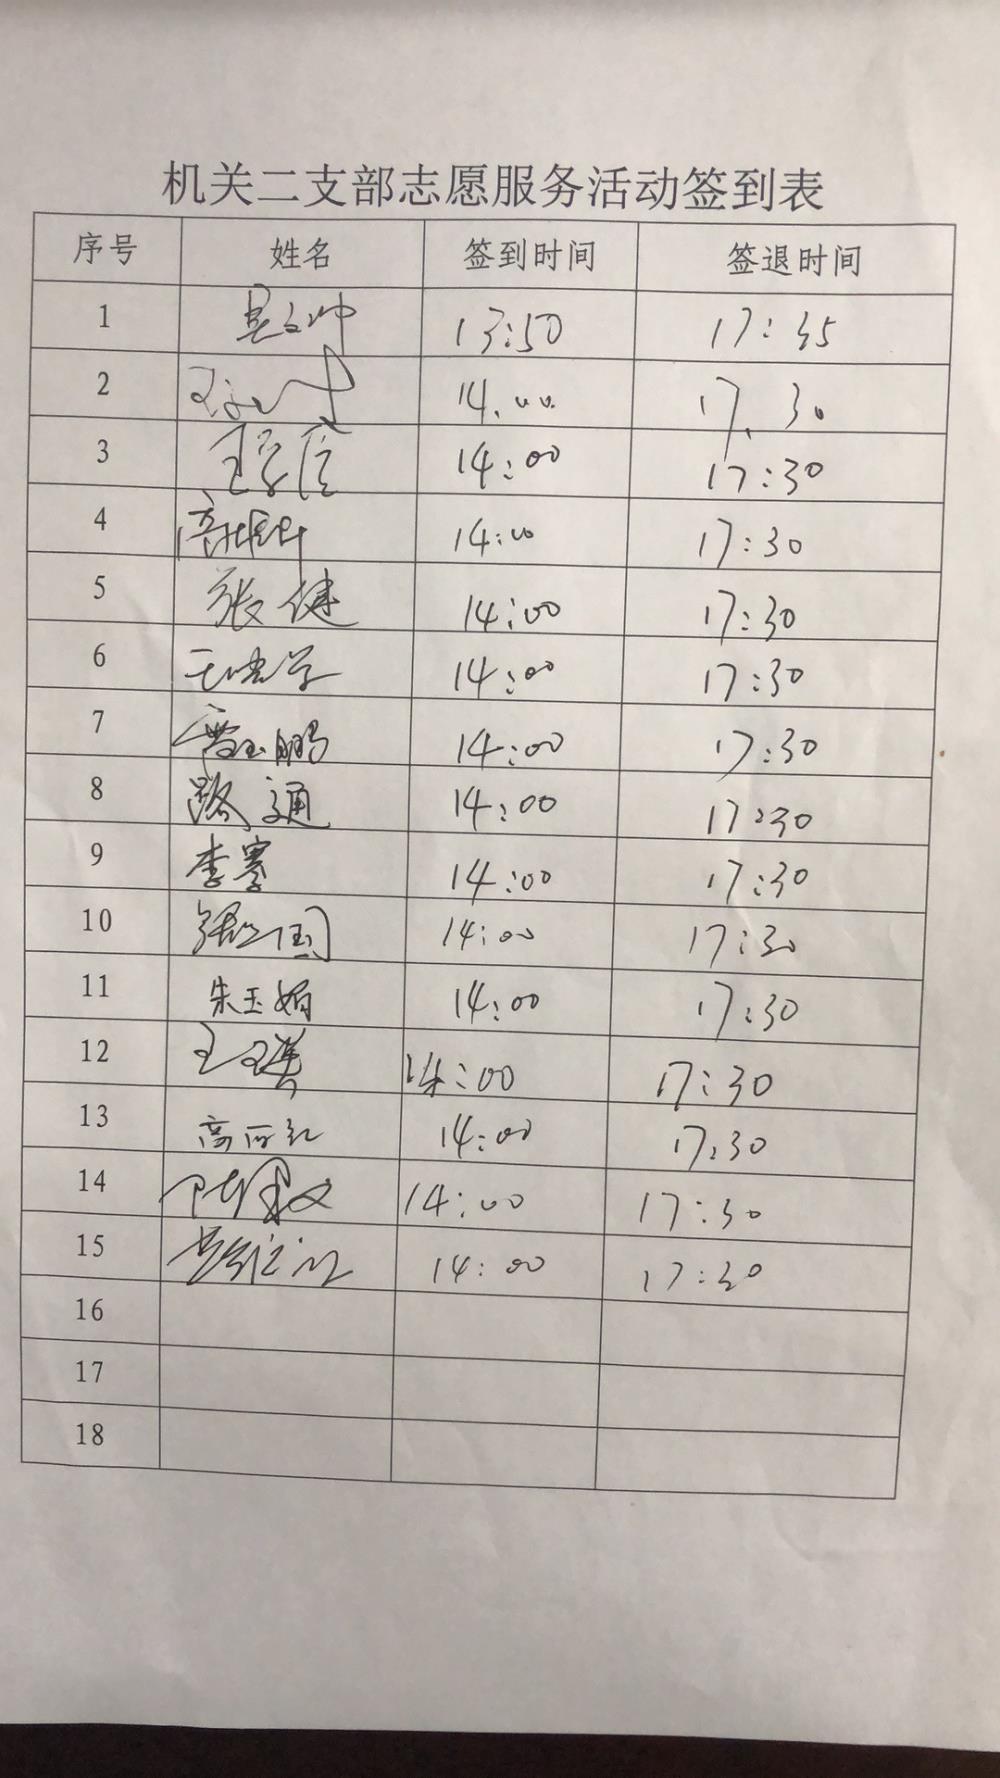 机关二支部志愿服务活动签到表
序号 姓名 签到时间 签退时间
1 13:50 17:35
2 14.00 17.30
3 14:00 17:30
4 14:00 17:30
5 张健 14:00 17:30
6 14:00 17:30
7 贾玉鹏 14:00 17:30
8 路通 14:00 17:30
9 李寥 14:00 17:30
10 14:00 17:30
11 朱玉娟 14:00 17:30
12 14:00 17:30
13 14:00 17:30
14 14:00 17:30
15 14:00 17:30
16
17
18